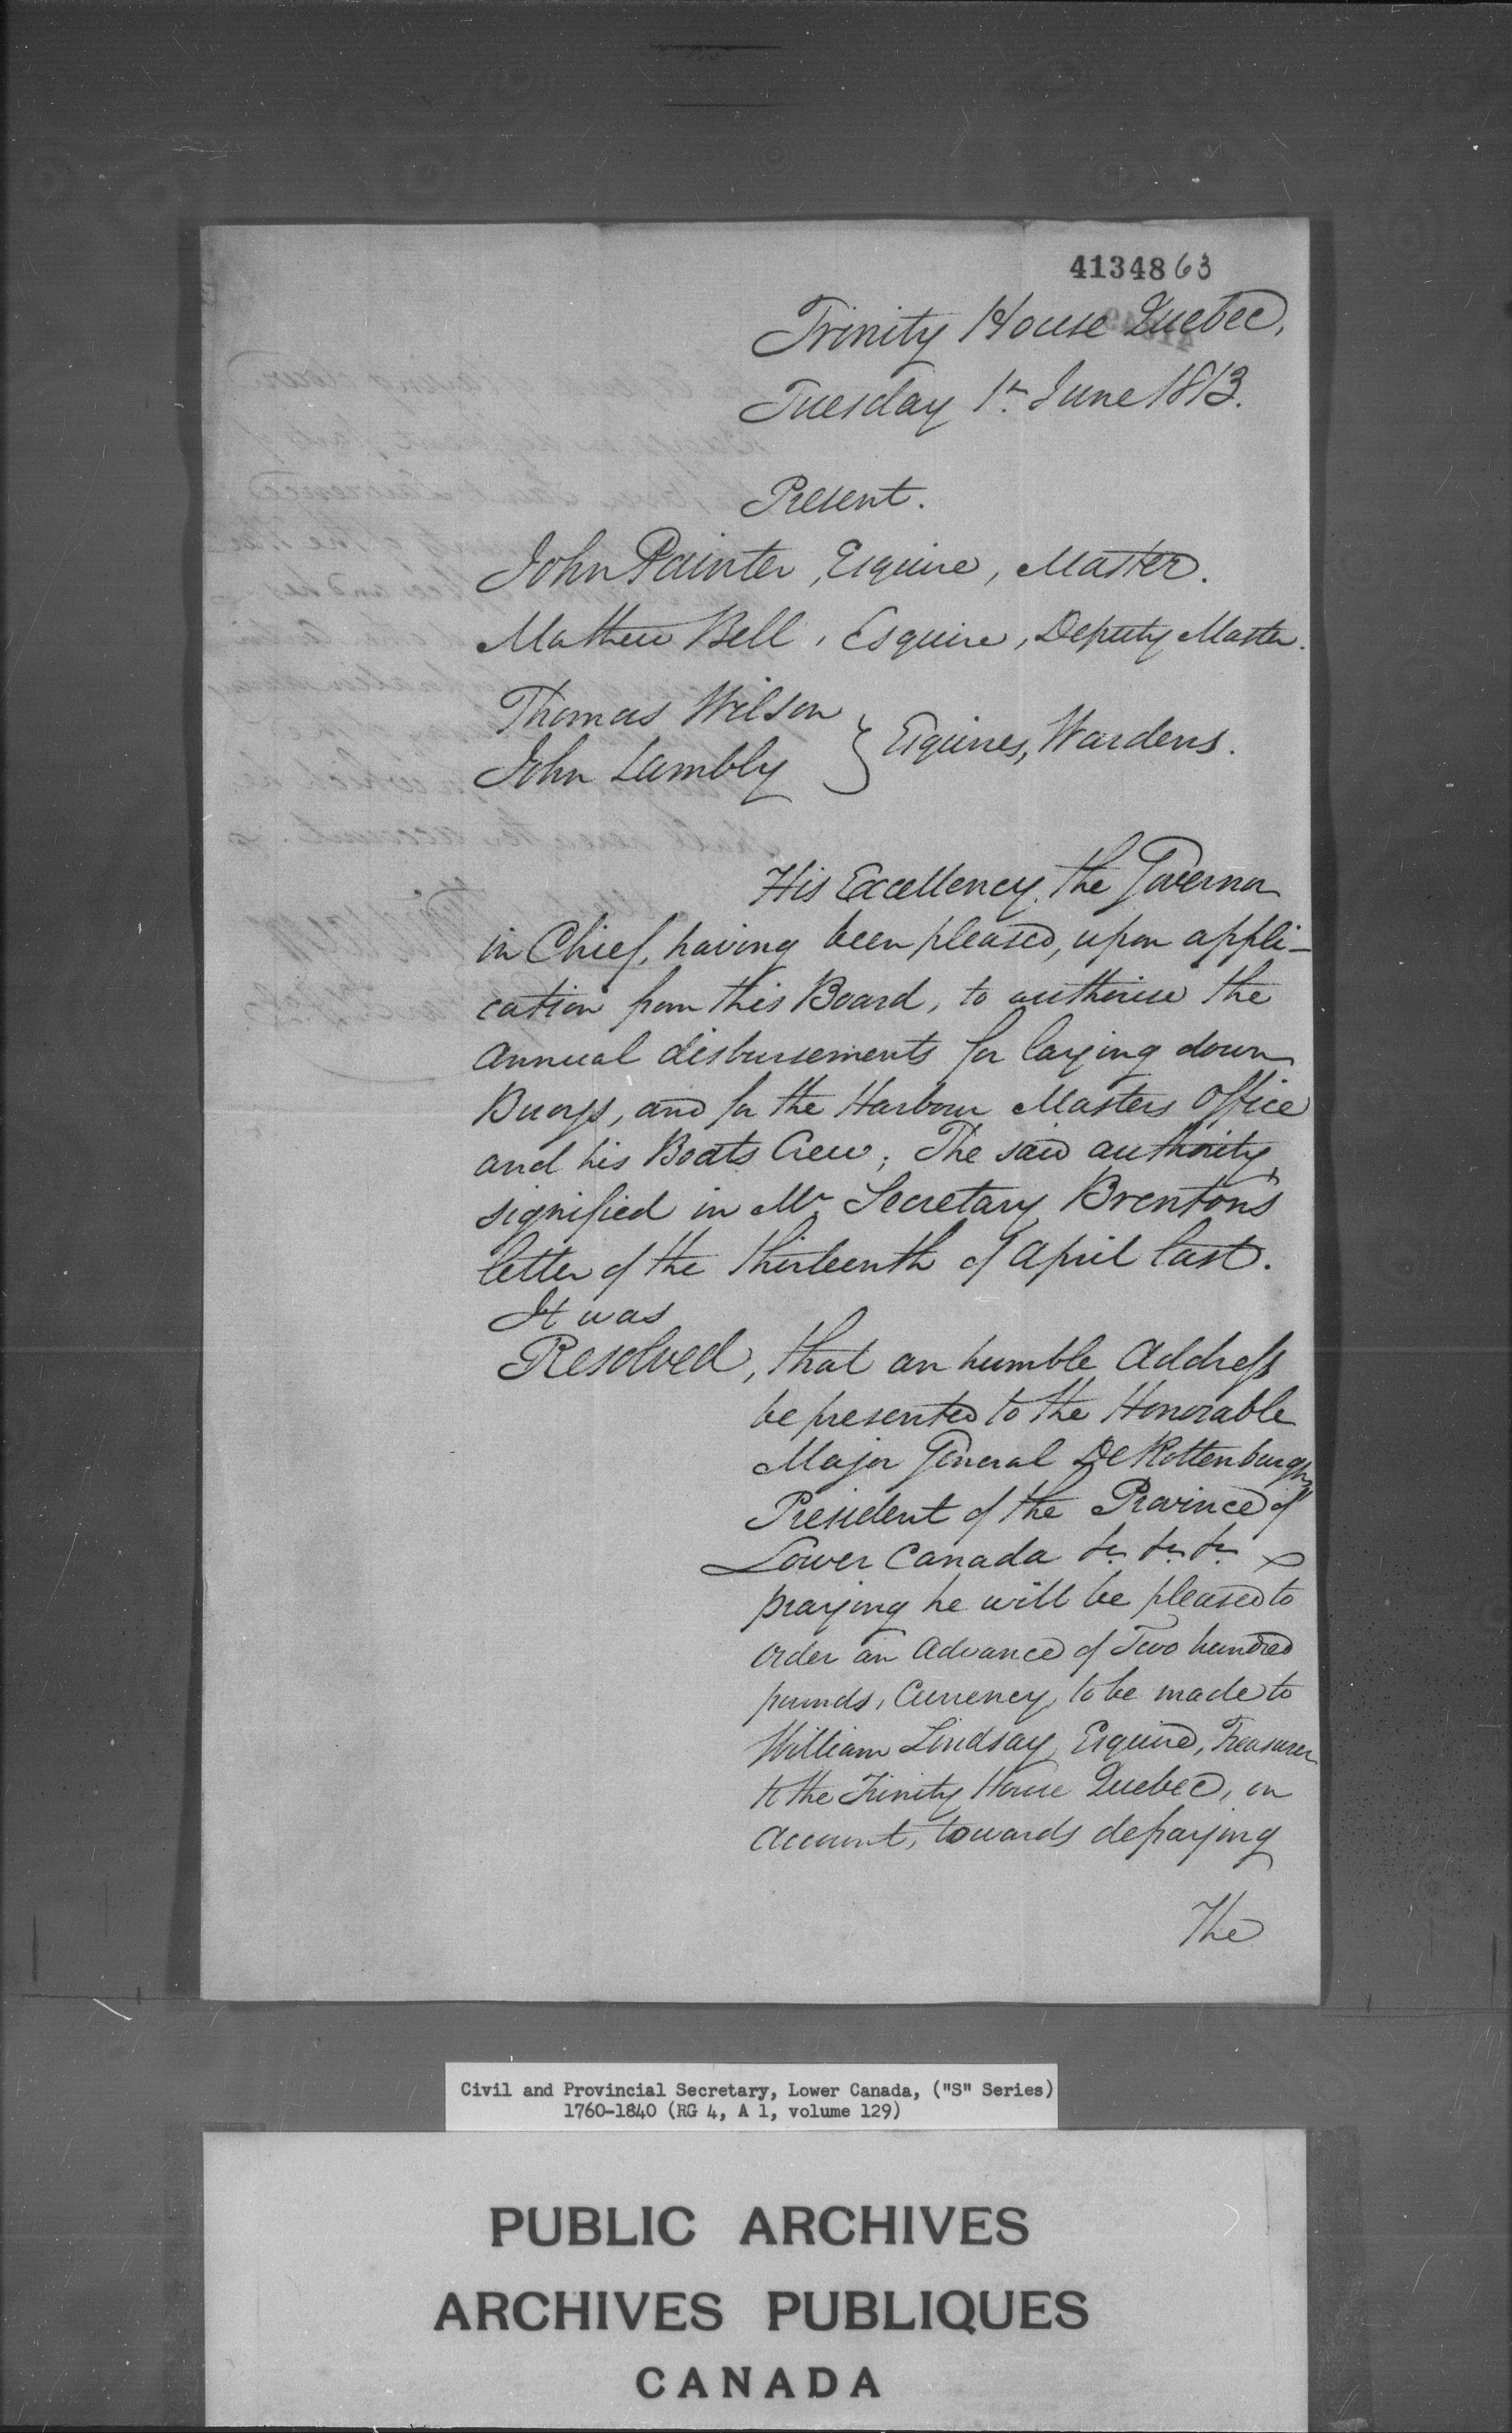 4134863
Trinity House Quebec,
Tuesday 1st June 1813.
Present.
John Painter, Esquire, Master.
Mathew Bell, Esquire, Deputy Master.
Thomas Wilson
John Lambly } Esquires, Wardens.
His Excellency, the Governor
in Chief, having been pleased, upon appli-
cation from this Board, to authorise the
annual disbursements for laying down
Buoys, and for the Harbour Masters Office
and his Boats Crew; The said authority,
signified in Mr Secretary Brenton's
letter of the thirteenth of April last.
It was
Resolved, that an humble Address
be presented to the Honorable
Major General De Rottenburgh
President of the Province of
Lower Canada &c. &c. &c.
praying he will be pleased to
order an Advance of Two hundred
pounds, Currency, to be made to
William Lindsay, Esquire, Treasurer
to the Trinity House Quebec, on
account, towards defraying
The
Civil and Provincial Secretary, Lower Canada, ("S" Series)
1760-1840 (RG 4, A 1, volume 129)
PUBLIC ARCHIVES
ARCHIVES PUBLIQUES
CANADA